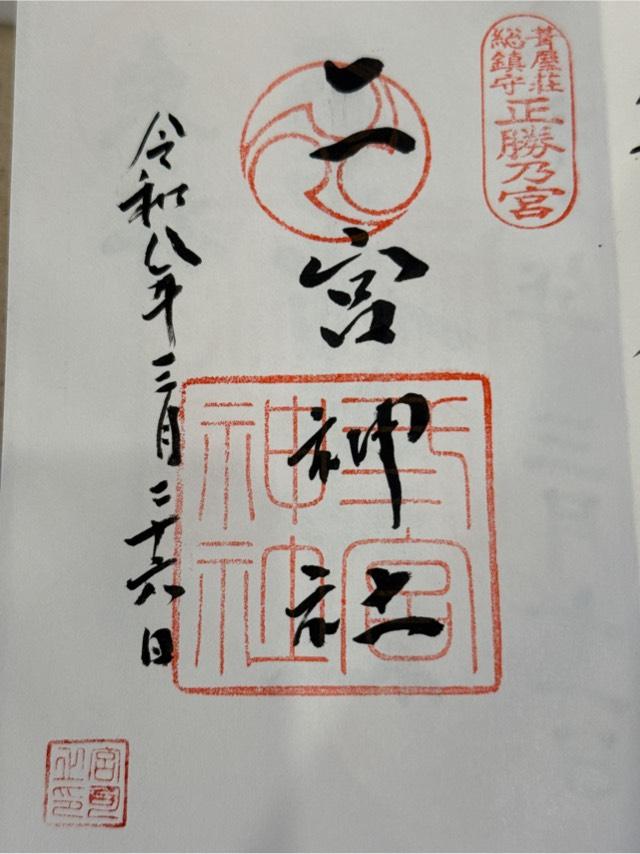 葺屋荘
総鎮守
正勝乃宮
二宮神社
令和八年三月二十六日
宮
神社
之印